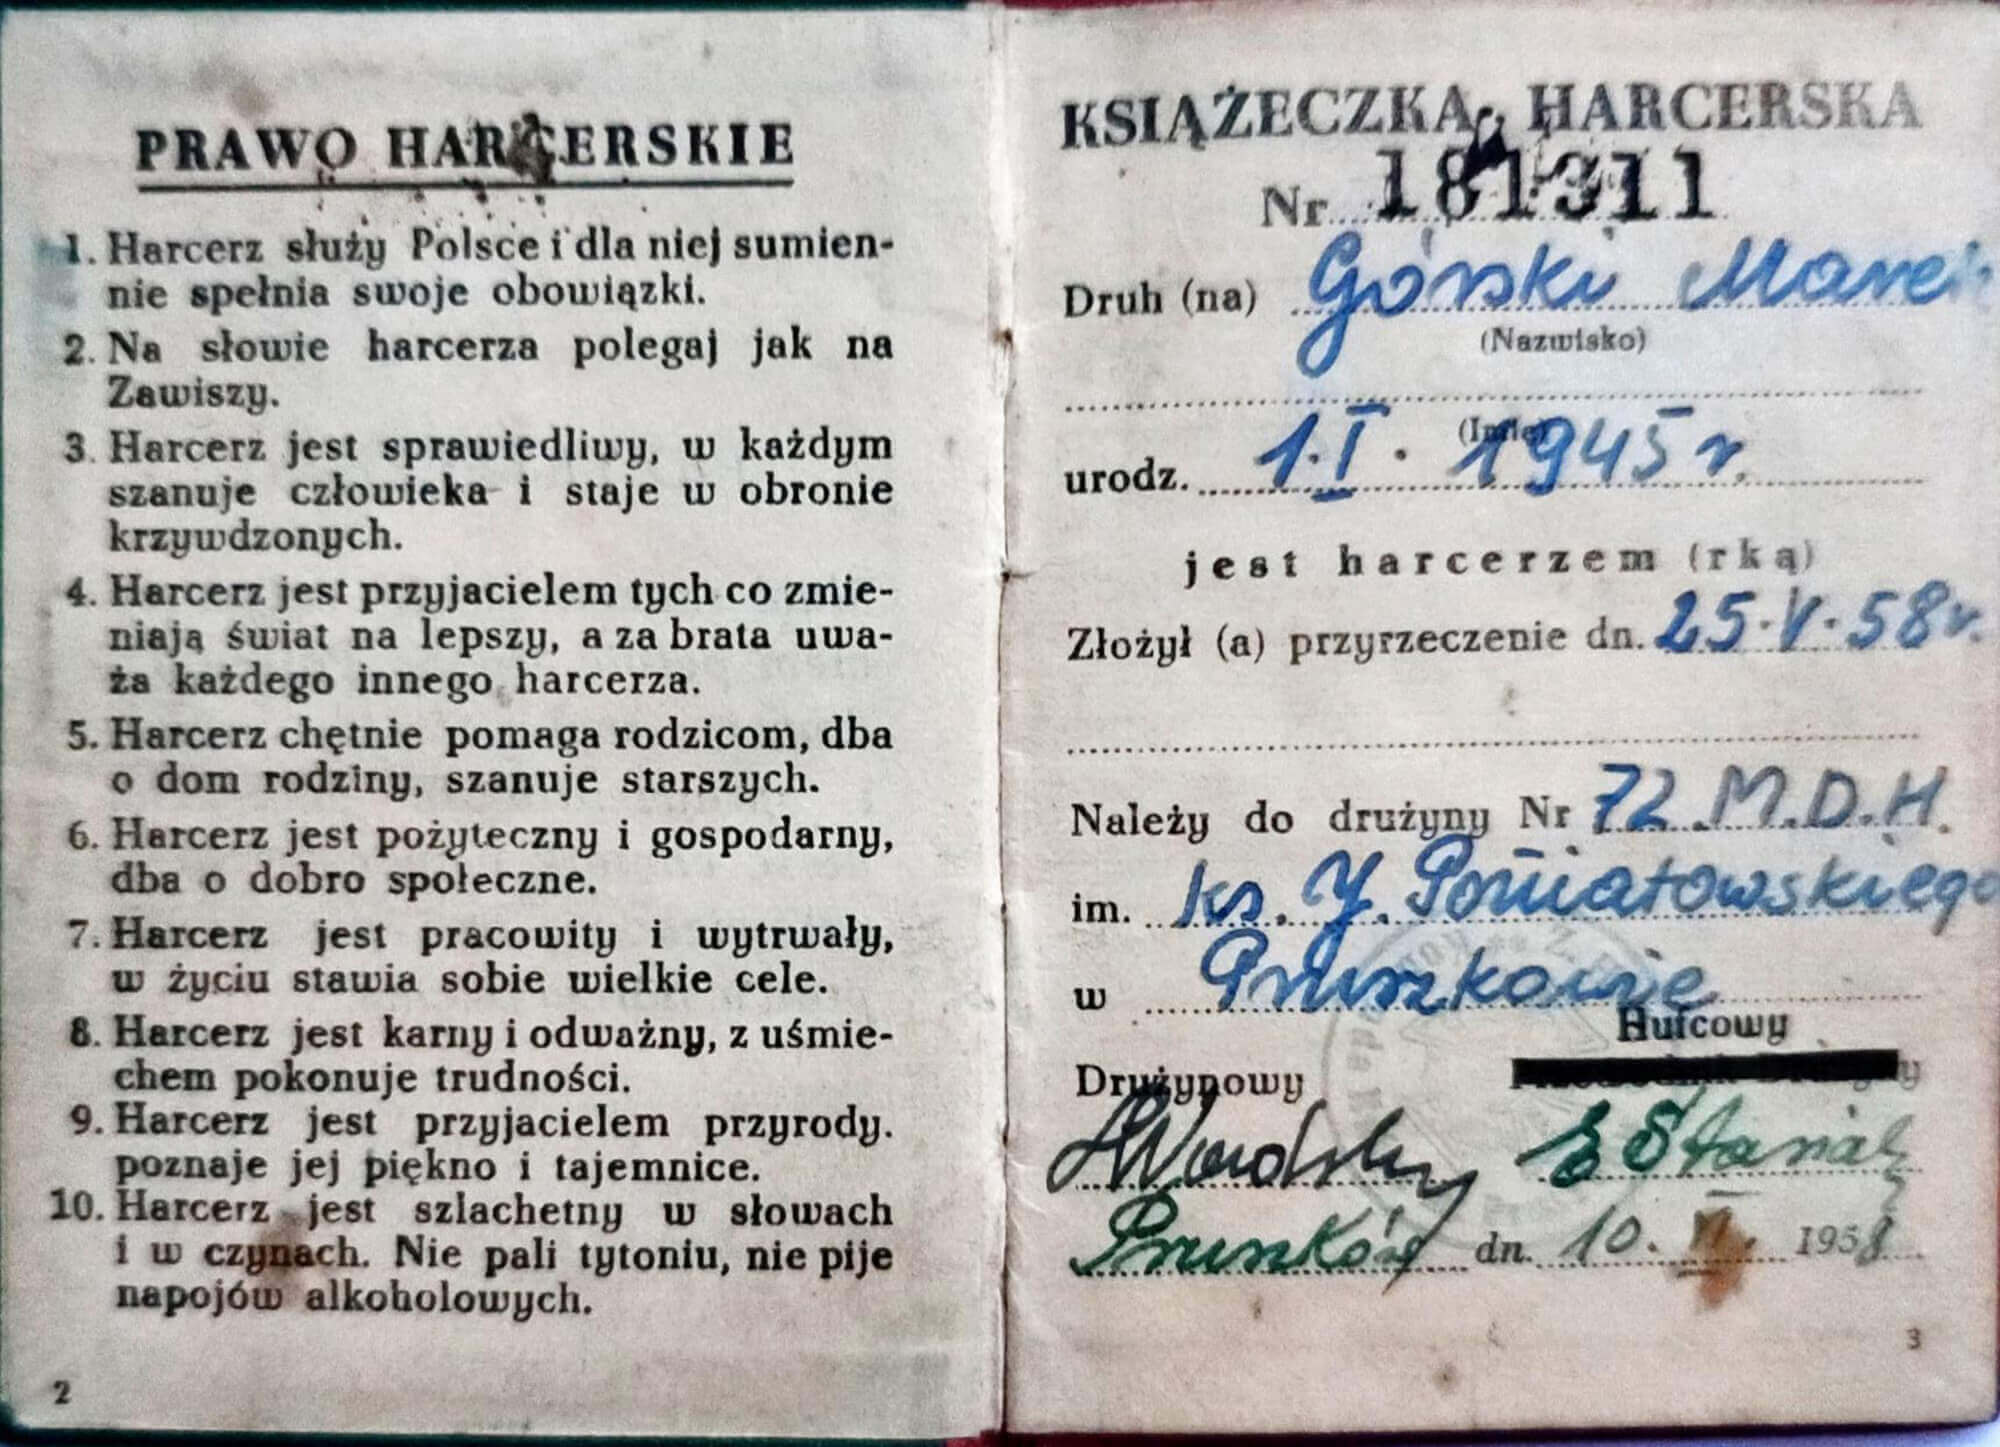 PRAWO HARCERSKIE
1. Harcerz służy Polsce i dla niej sumien-
nie spełnia swoje obowiązki.
2. Na słowie harcerza polegaj jak na
Zawiszy.
3. Harcerz jest sprawiedliwy, w każdym
szanuje człowieka i staje w obronie
krzywdzonych.
4. Harcerz jest przyjacielem tych co zmie-
niają świat na lepszy, a za brata uwa-
ża każdego innego harcerza.
5. Harcerz chętnie pomaga rodzicom, dba
o dom rodziny, szanuje starszych.
6. Harcerz jest pożyteczny i gospodarny,
dba o dobro społeczne.
7. Harcerz jest pracowity i wytrwały,
w życiu stawia sobie wielkie cele.
8. Harcerz jest karny i odważny, z uśmie-
chem pokonuje trudności.
9. Harcerz jest przyjacielem przyrody.
poznaje jej piękno i tajemnice.
10. Harcerz jest szlachetny w słowach
i w czynach. Nie pali tytoniu, nie pije
napojów alkoholowych.
2
KSIĄŻECZKA HARCERSKA
Nr 181311
Druh (na) Górski Marek
(Nazwisko)
(Imię)
urodz. 1.I. 1945 r.
jest harcerzem (rką)
Złożył (a) przyrzeczenie dn. 25.V.58 r.
Należy do drużyny Nr 72 M.D.H.
im. ks. J. Poniatowskiego
w Pruszkowie
Hufcowy
Drużynowy
Pruszków dn. 10. VI. 1958
3